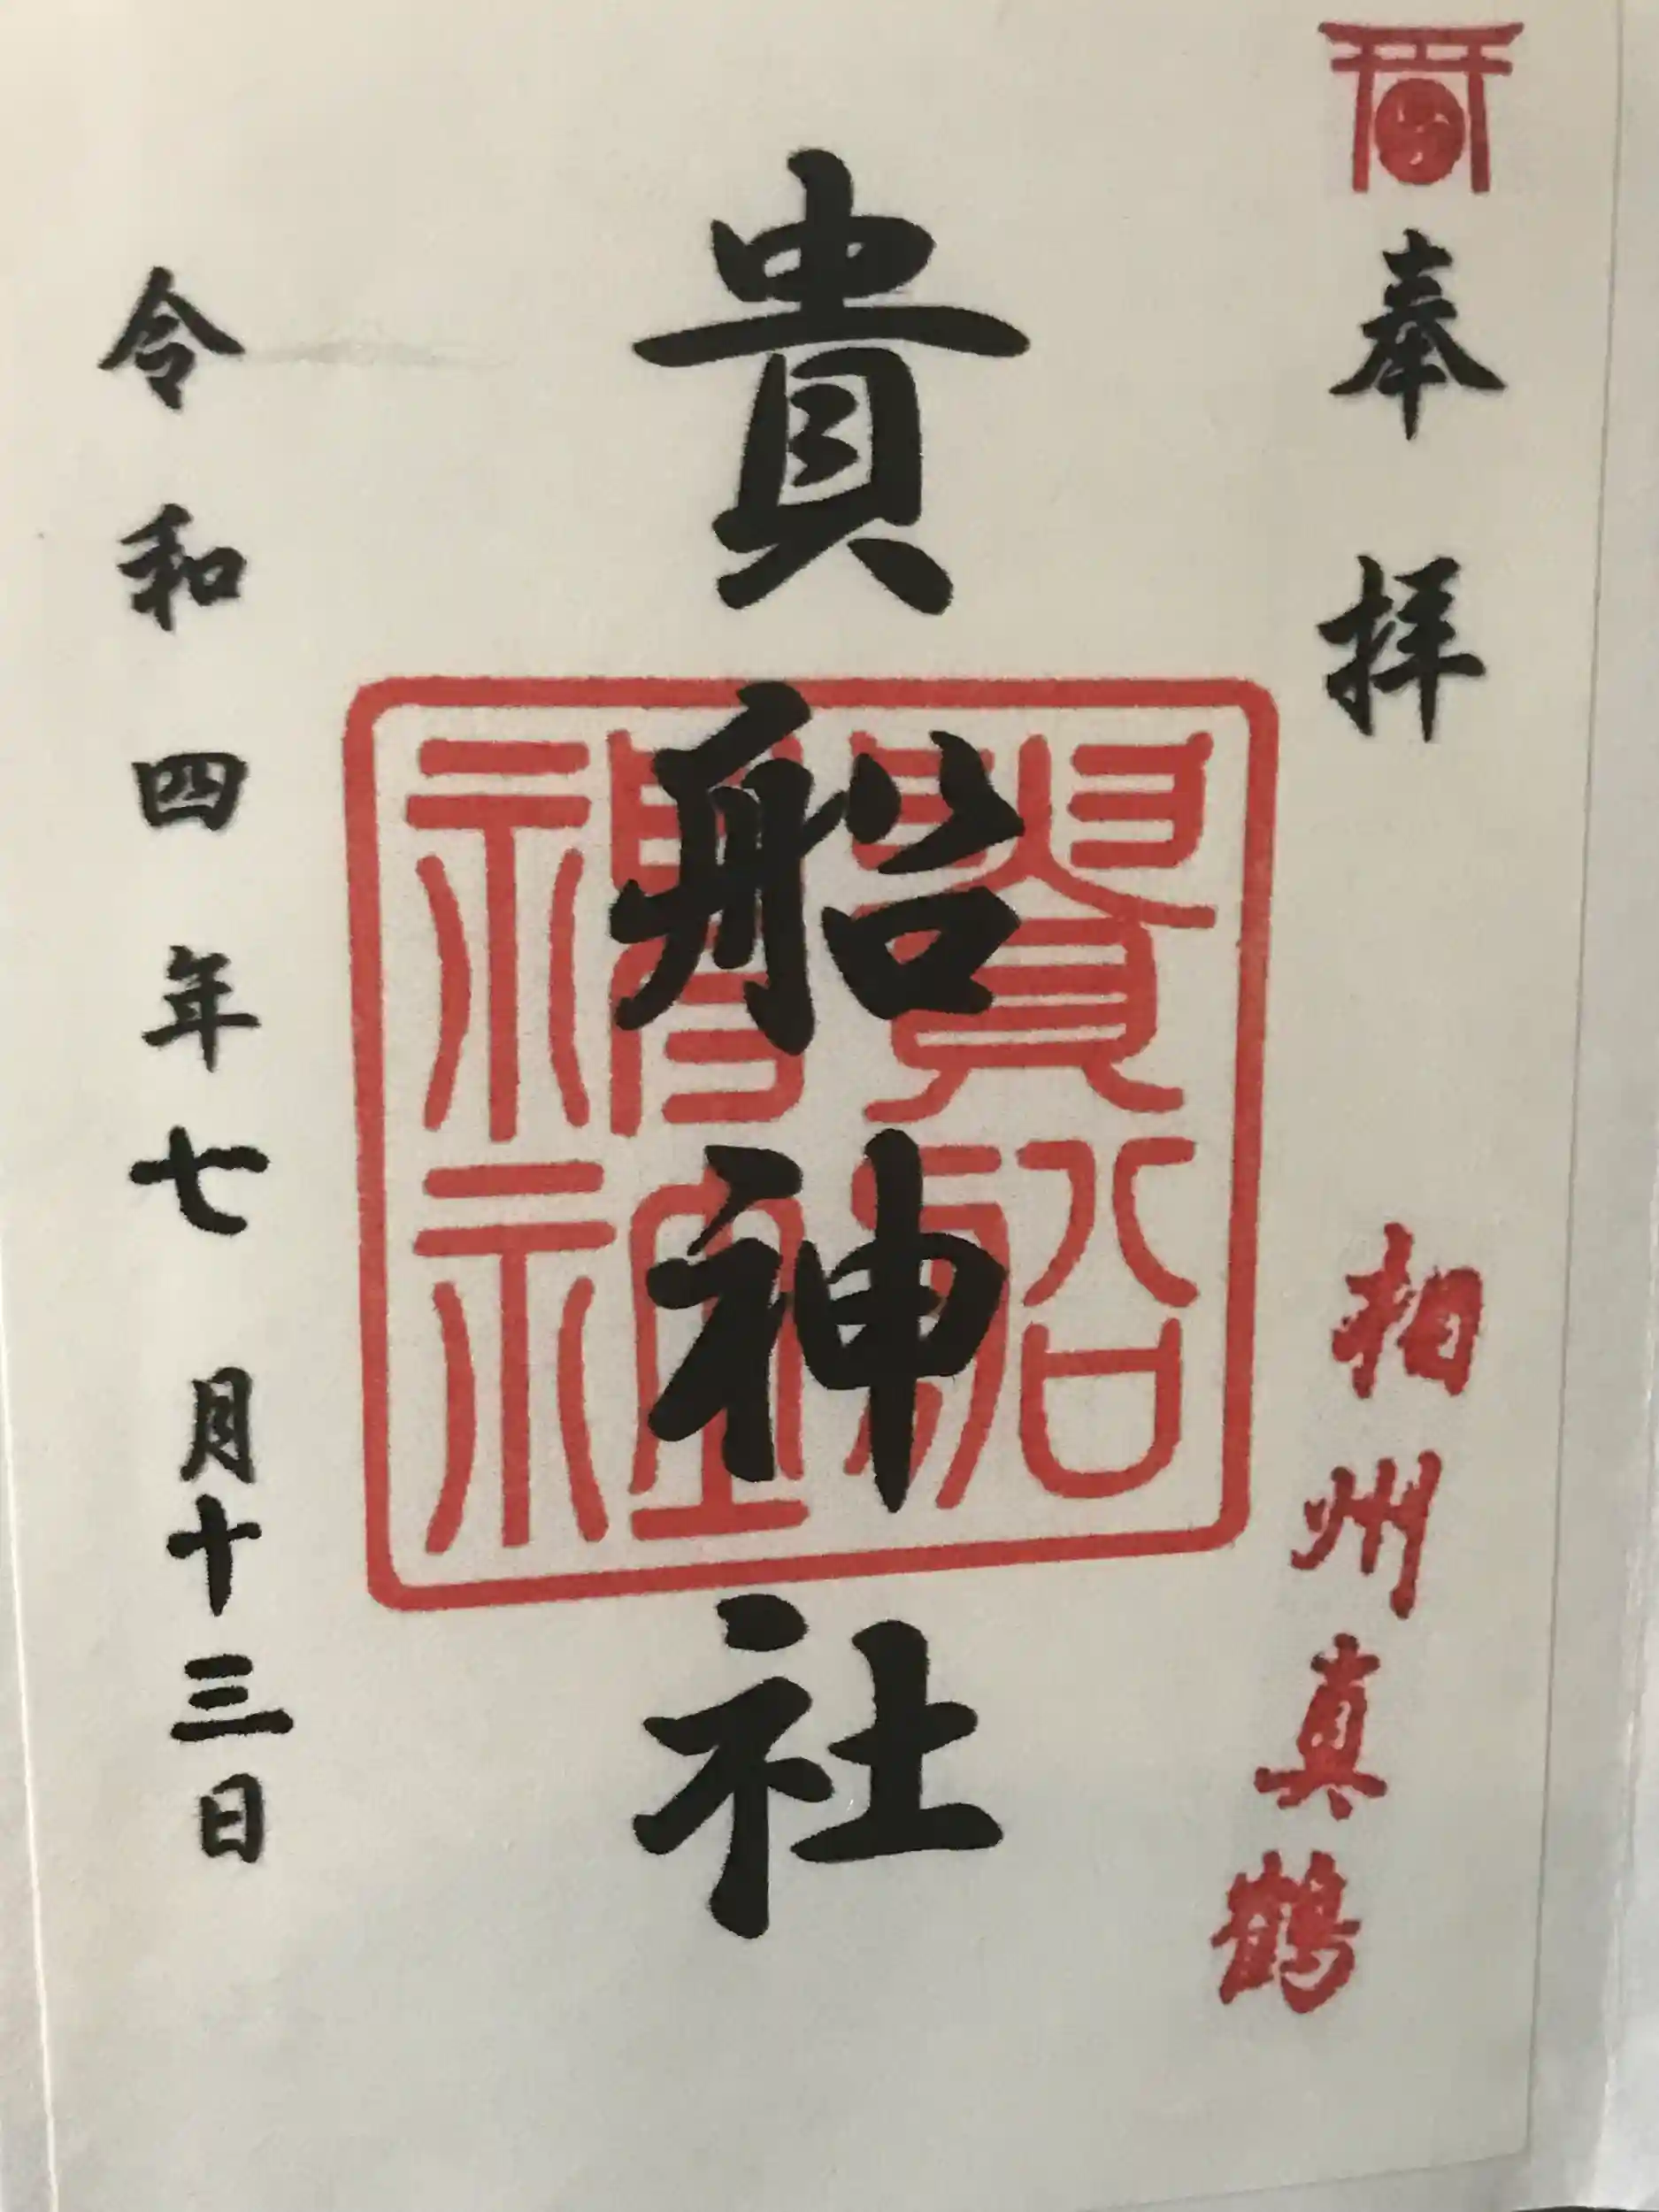 奉拝
相州真鶴
貴船神社
貴船神社
令和四年七月十三日